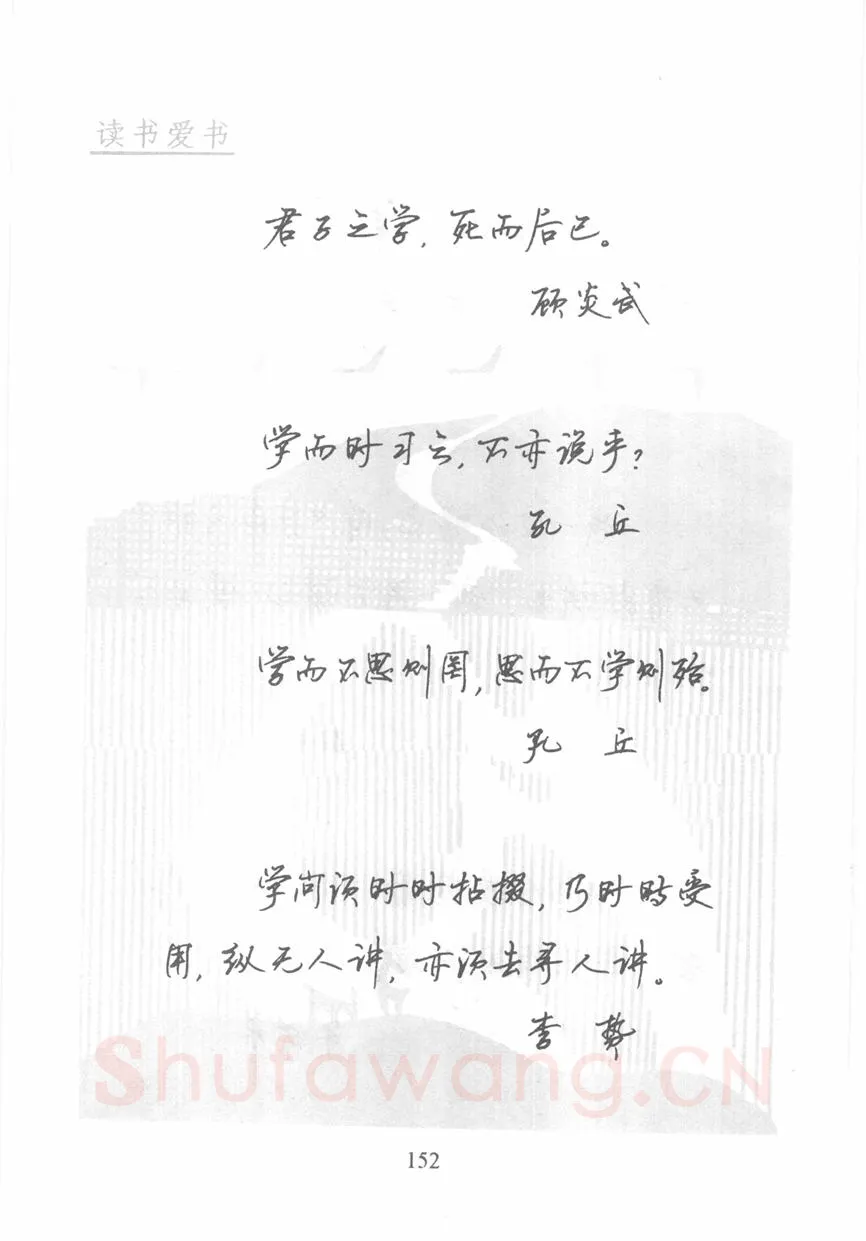 读书爱书
君子之学，死而后已。
顾炎武
学而时习之，不亦说乎？
孔 丘
学而不思则罔，思而不学则殆。
孔 丘
学问须时时拈掇，乃时时受
用，纵无人讲，亦须去寻人讲。
李 贽
Shufawang.CN
152